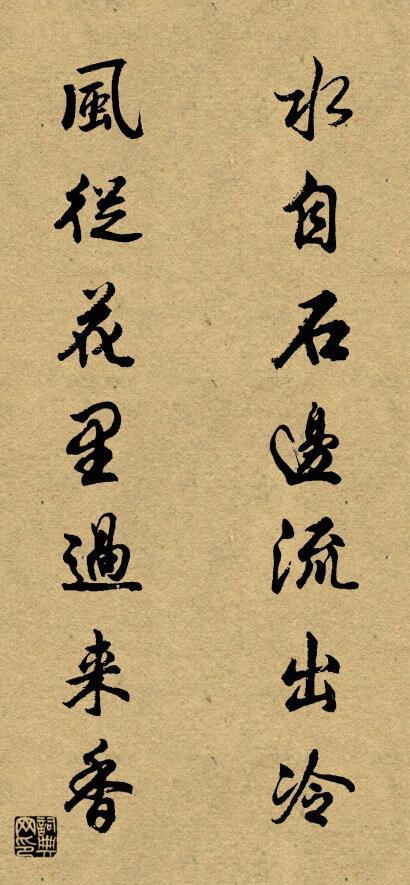 水自石邊流出冷
風從花里過来香
詞典网印